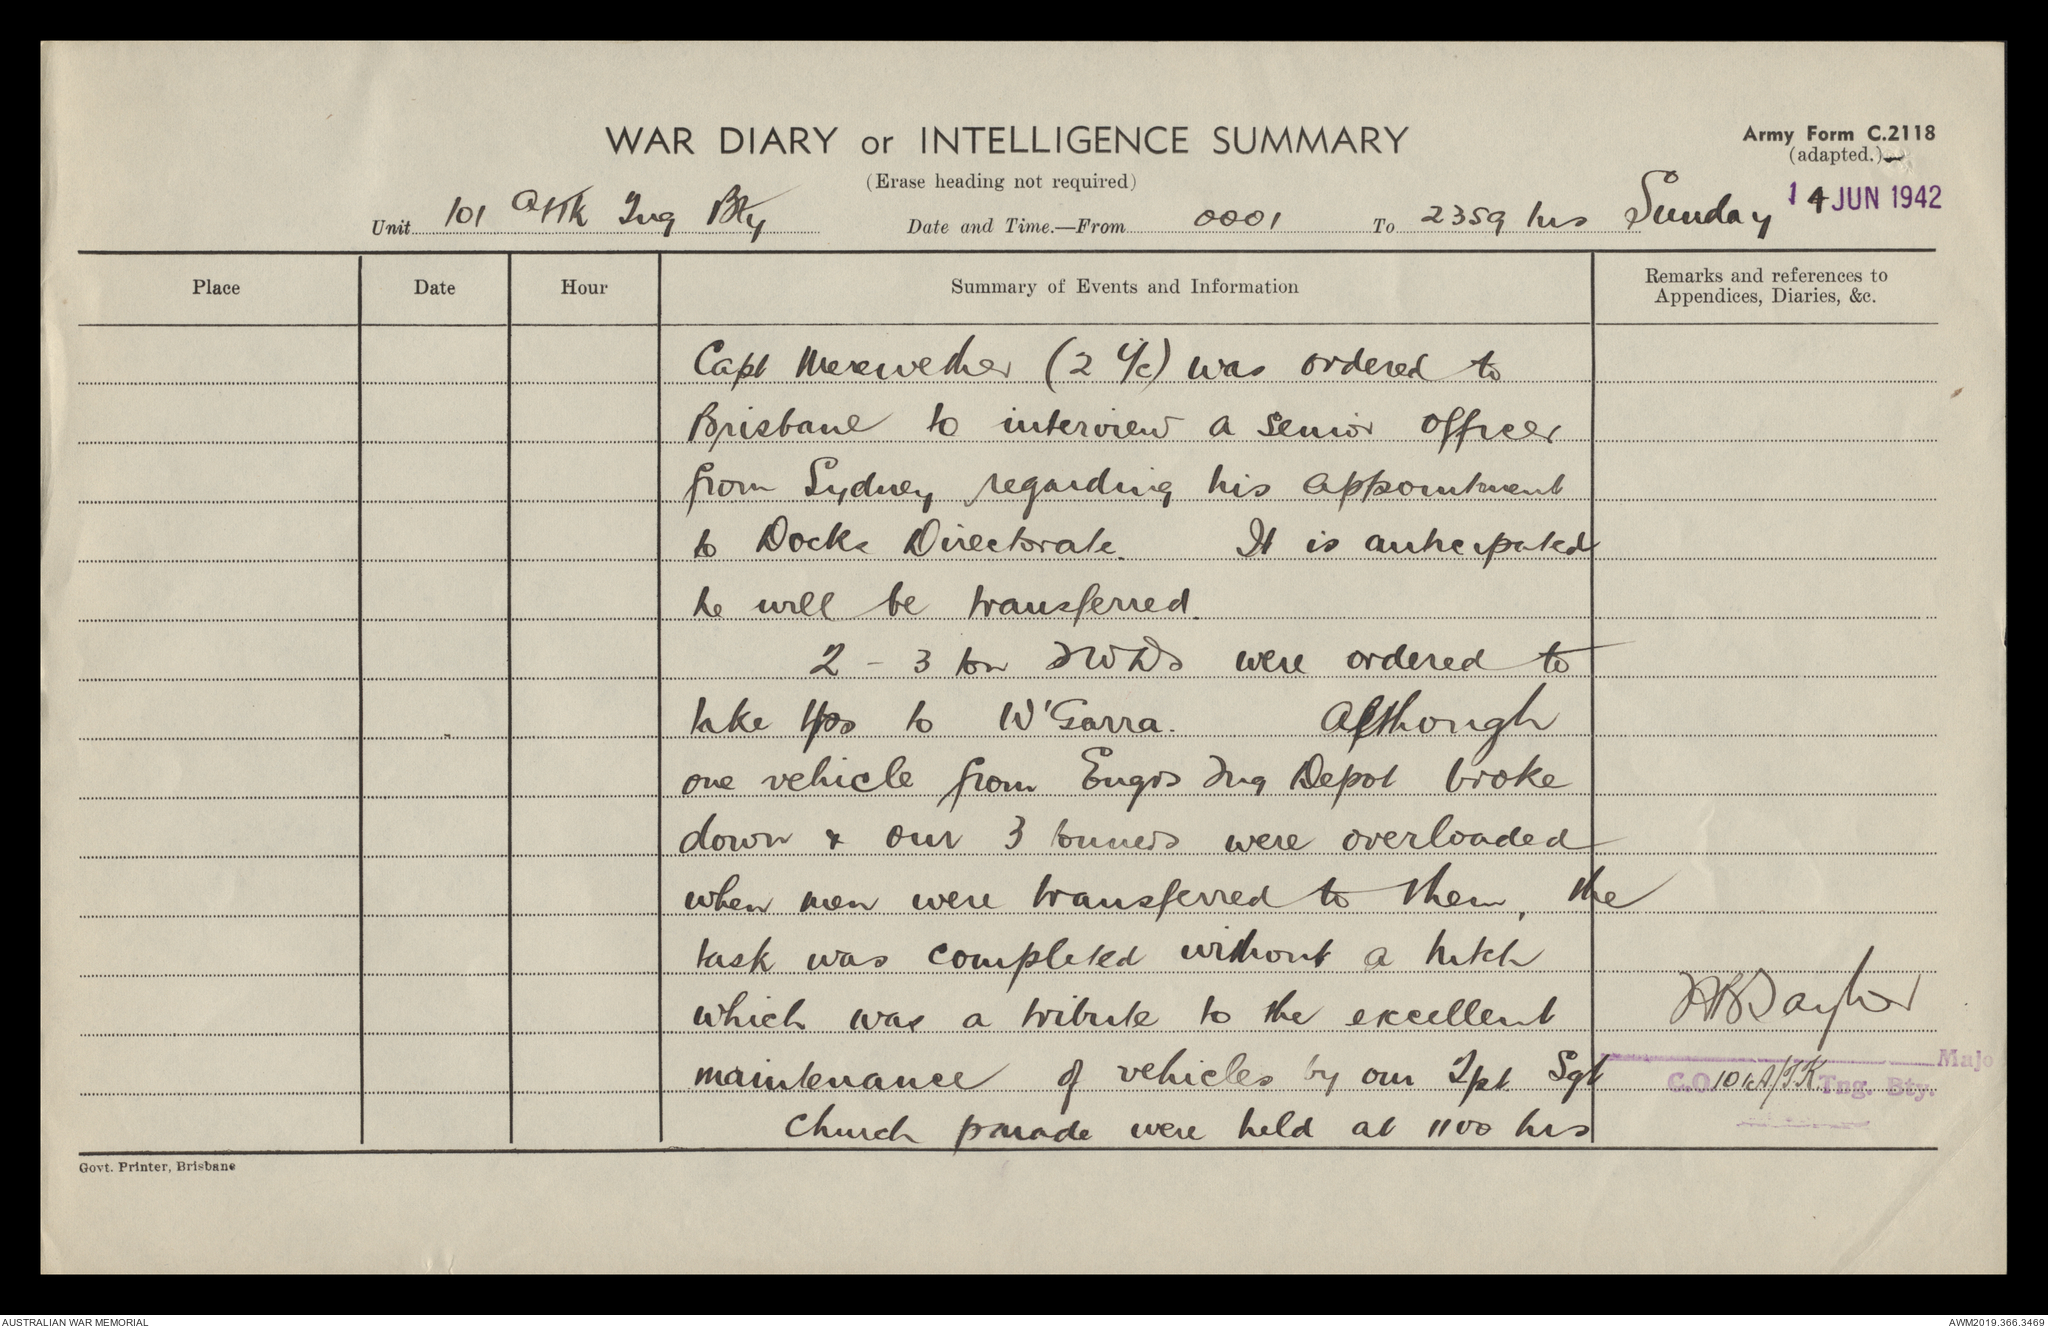 WAR DIARY or INTELLIGENCE SUMMARY
Army Form C.2118
(adapted.)
(Erase heading not required)
Unit 101 Attk Tng Bty Date and Time.—From 0001 To 2359 hrs Sunday 14 JUN 1942
Place Date Hour Summary of Events and Information Remarks and references to
Appendices, Diaries, &c.
Capt Merewether (2 I/c) was ordered to
Brisbane to interview a senior officer
from Sydney regarding his appointment
to Docks Directorate. It is anticipated
he will be transferred.
2 - 3 ton were ordered to
take tps to W'Garra. Although
one vehicle from Engrs Tng Depot broke
down & our 3 tonners were overloaded
when men were transferred to them, the
task was completed without a hitch
which was a tribute to the excellent
maintenance of vehicles by our Tpt Sgt
Church parade were held at 1100 hrs
Taylor
Majo
C.O. 101 A/TK Tng. Bty.
Govt. Printer, Brisbane
AUSTRALIAN WAR MEMORIAL
AWM2019.366.3469